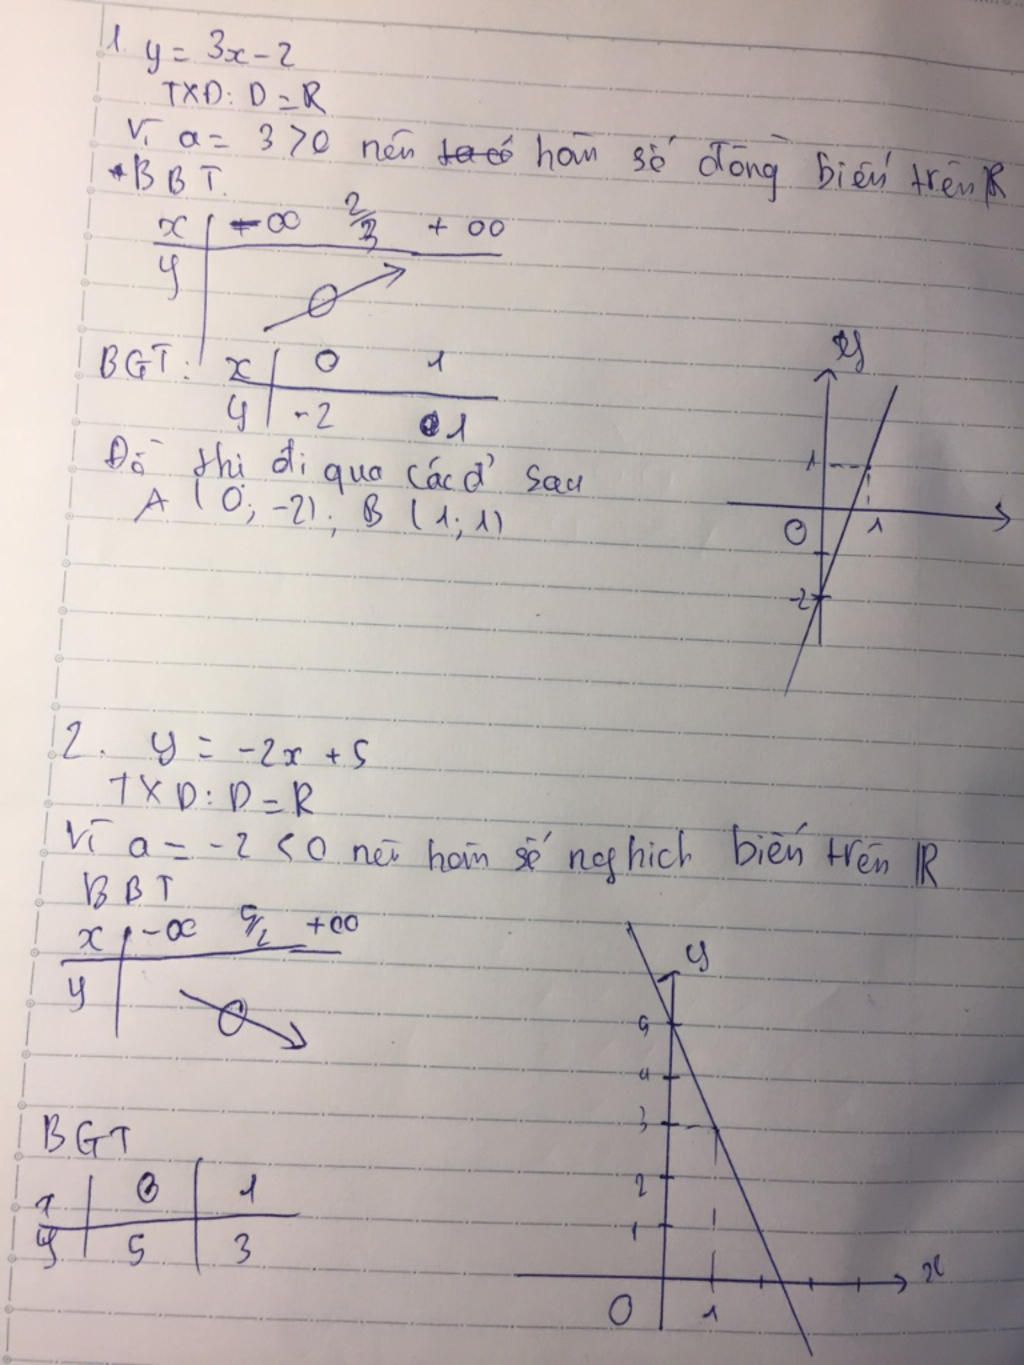 1. y = 3x - 2
TXD: D = R
Vì a = 3 > 0 nên hàm số đồng biến trên R
*BBT.
x -∞ 2/3 + ∞
y 0
BGT: x 0 1
y -2 1
Đồ thị đi qua các đ' sau
A (0; -2); B (1; 1)
y
1
O 1
-2
2. y = -2x + 5
TXD: D = R
Vì a = -2 < 0 nên hàm số nghich biến trên R
BBT
x -∞ 5/2 +∞
y 0
BGT
x 0 1
y 5 3
y
5
4
3
2
1
x
O 1